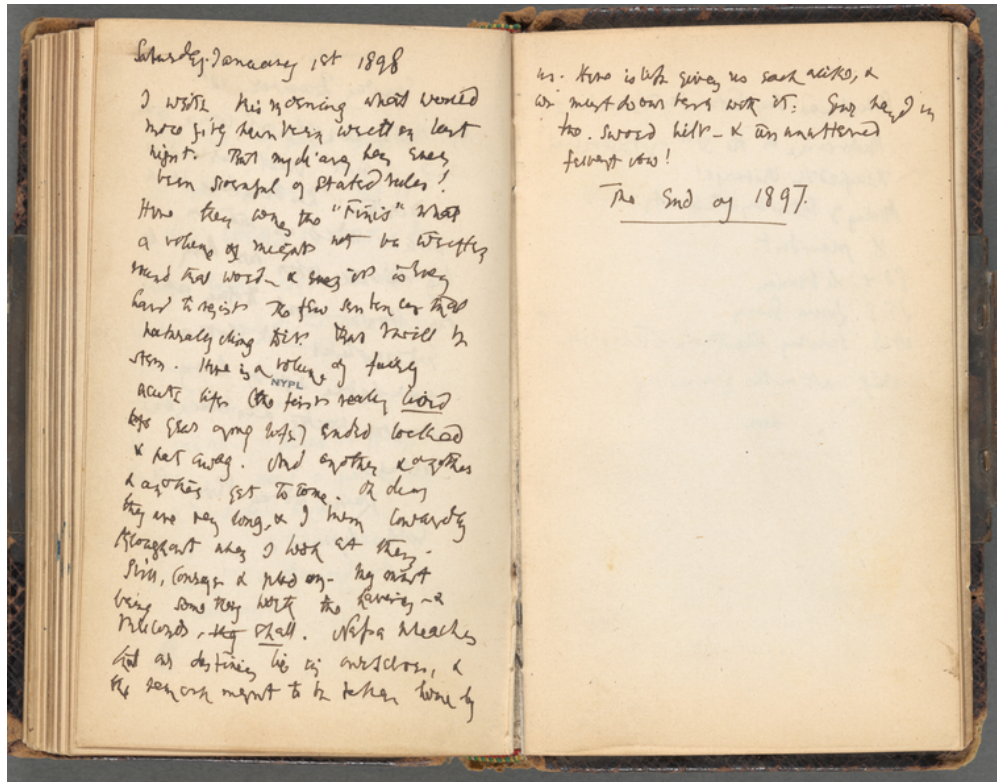 Saturday. January 1st 1898
I write this morning what would
more fitly have been written last
night. But my diary has ever
been scornful of stated rules!
Here then comes the "Finis" what
a volume might not be written
round that word - & it is very
hard to resist the few sentences that
naturally cling to it. But I will be
stern. Here is a volume of fairly
NYPL
acute life (the first really lived
year of my life) ended locked
& put away. And another & another
& another yet to come. Oh dear
they are very long, & I seem cowardly
throughout when I look at them.
Still, courage & plod on - they must
bring something worth the having - &
they shall. Nessa preaches
that our destinies lie in ourselves, &
the sermon ought to be taken home by
us. Here is life given us each alike, &
we must do our best with it: your hand in
the sword hilt - & an unuttered
fervent vow!
The End of 1897.